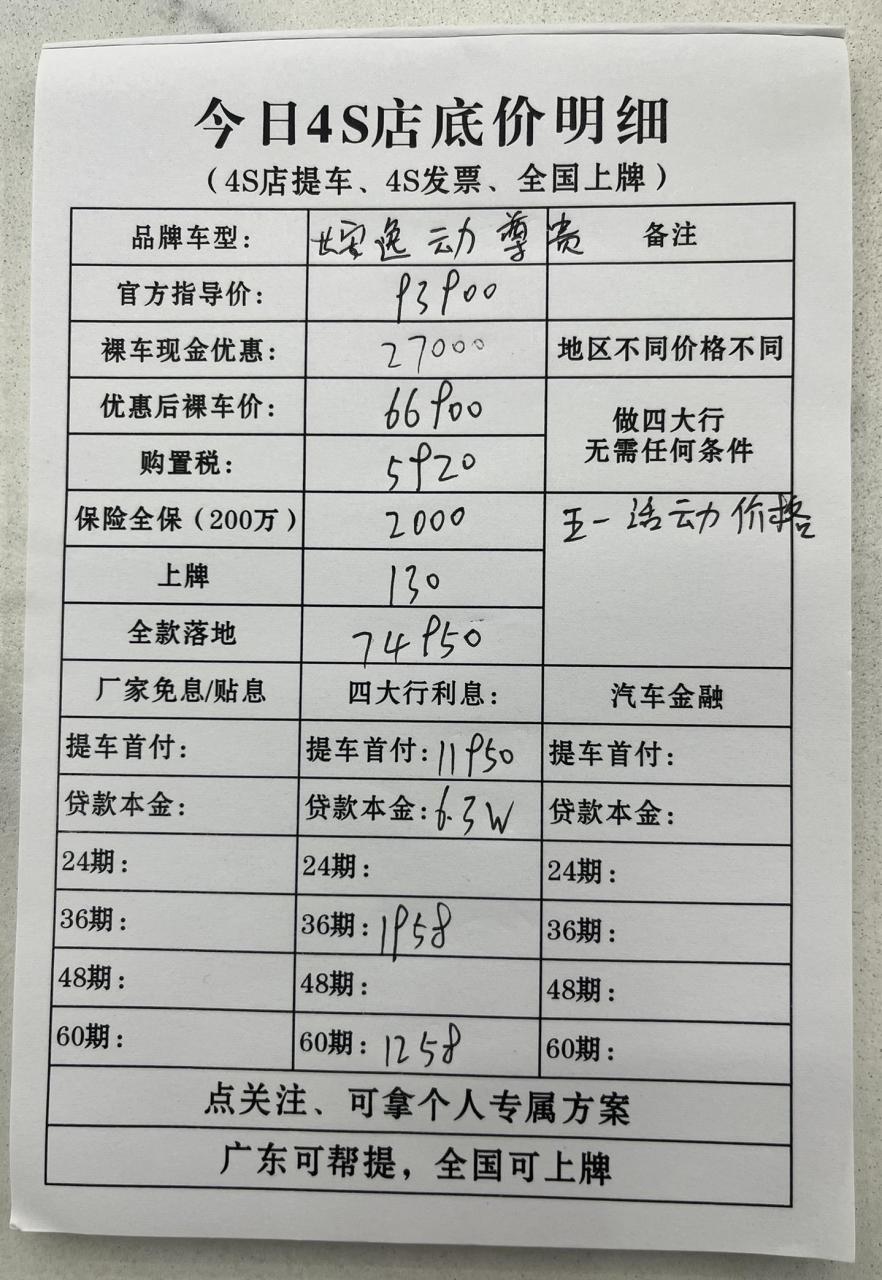 今日4S店底价明细
（4S店提车、4S发票、全国上牌）
品牌车型： 长安逸动尊贵 备注
官方指导价： 93900
裸车现金优惠： 27000 地区不同价格不同
优惠后裸车价： 66900
做四大行
无需任何条件
购置税： 5920
保险全保（200万） 2000 五一活动价格
上牌 130
全款落地 74950
厂家免息/贴息 四大行利息： 汽车金融
提车首付： 提车首付：11950 提车首付：
贷款本金： 贷款本金：6.3W 贷款本金：
24期： 24期： 24期：
36期： 36期：1958 36期：
48期： 48期： 48期：
60期： 60期：1258 60期：
点关注、可拿个人专属方案
广东可帮提，全国可上牌